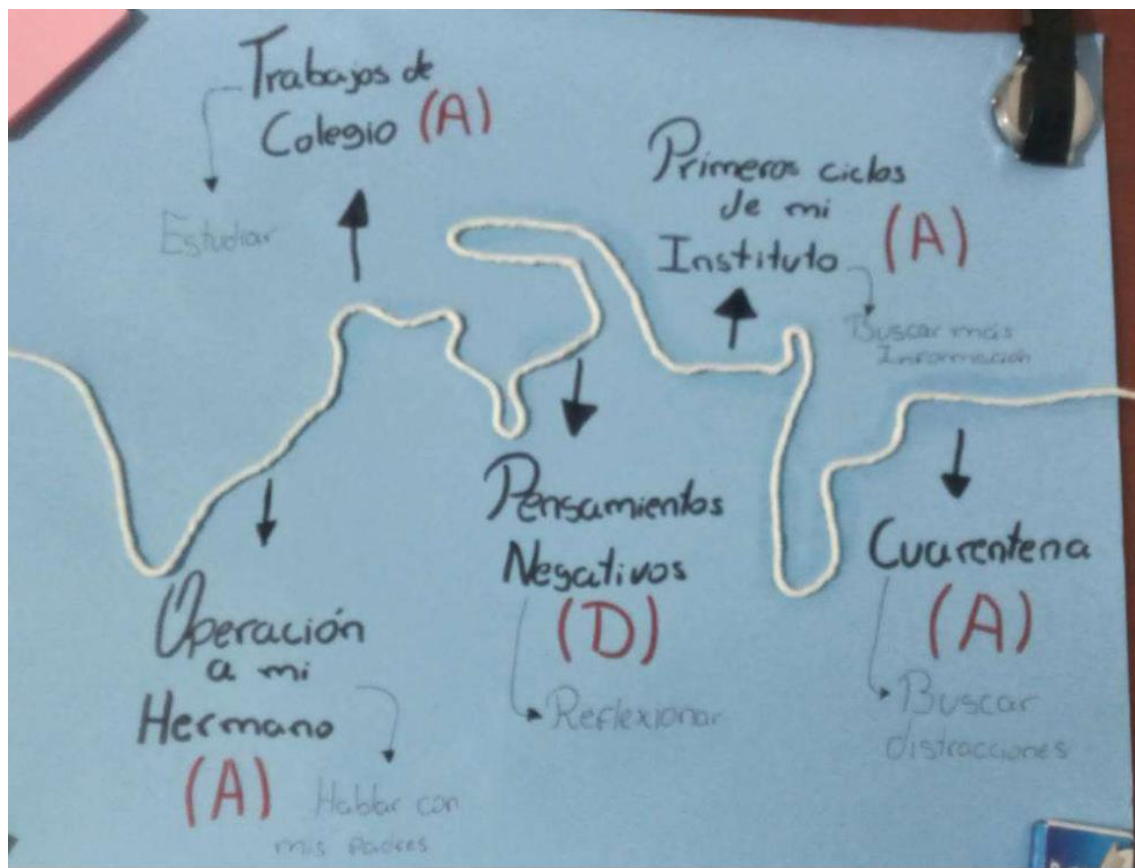 Trabajos de
Colegio (A)
Estudiar
Primeros ciclos
de mi
Instituto (A)
Buscar más
Información
Operación
a mi
Hermano
(A)
Hablar con
mis padres
Pensamientos
Negativos
(D)
Reflexionar
Cuarentena
(A)
Buscar
distracciones